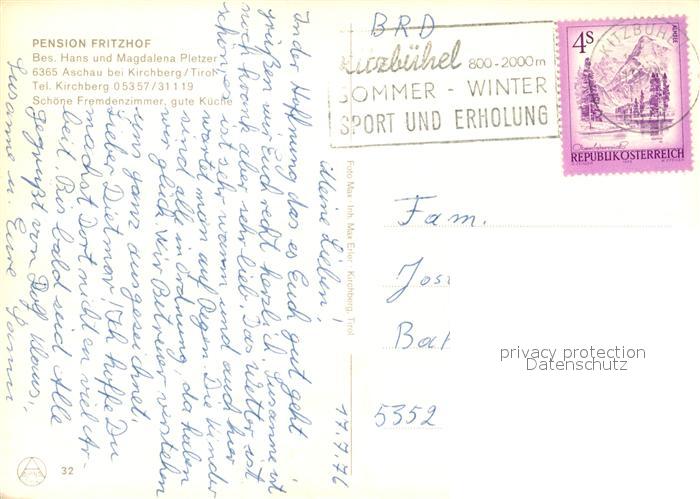 PENSION FRITZHOF
Bes. Hans und Magdalena Pletzer
6365 Aschau bei Kirchberg/Tirol
Tel. Kirchberg 05357/31119
Schöne Fremdenzimmer, gute Küche
17.7.76
Meine Lieben!
In der Hoffnung das es Euch gut geht
grüßen wir Euch recht herzlich. Susanne ist
noch krank aber sehr lieb. Das Wetter ist
schön es ist sehr warm und auch hier
wartet man auf Regen. Die Kinder
sind alle in Ordnung, da haben
wir Glück. Wir Betreuer verstehen
uns ganz ausgezeichnet.
Lieber Dietmar! Ich hoffe Du
machst Dort nicht en viel Ar-
beit. Bis bald seid Alle
gegrüßt von Dolf, Klaus,
Susanne u. Eure
Foto Max Inh. Max Erler, Kirchberg, Tirol
32
BRD
Kitzbühel 800-2000m
SOMMER - WINTER
SPORT UND ERHOLUNG
KITZBÜHEL
4S
ALMSEE
Oberösterreich
REPUBLIK ÖSTERREICH
Fam.
Jos
Bat
5352
privacy protection
Datenschutz